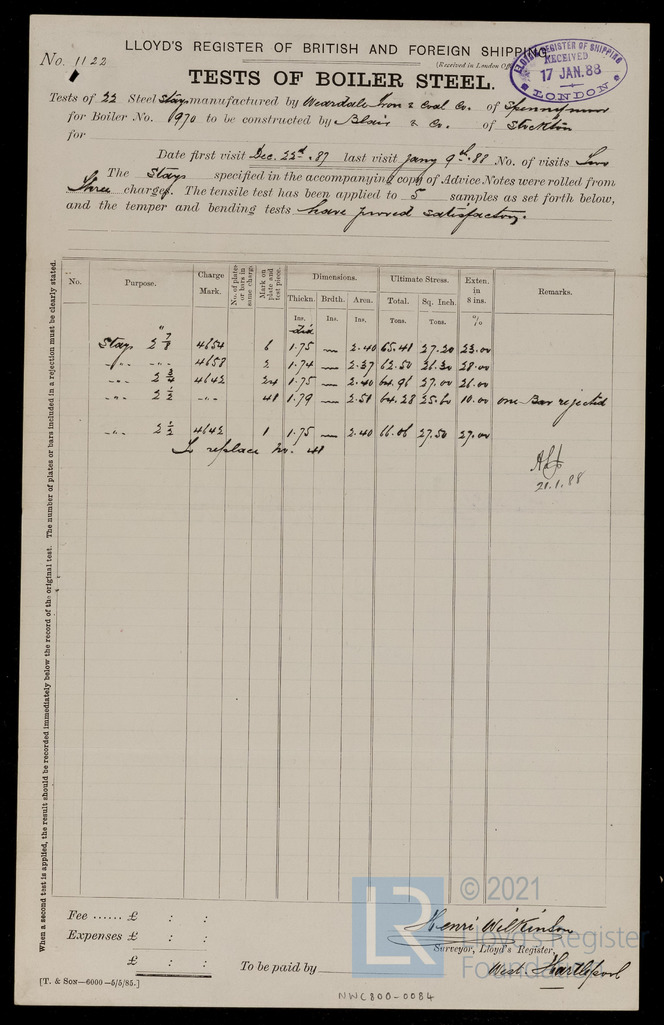 No. 1122
LLOYD'S REGISTER OF BRITISH AND FOREIGN SHIPPING.
(Received in London Off
LLOYDS REGISTER OF SHIPPING
RECEIVED
17 JAN. 88
LONDON
TESTS OF BOILER STEEL.
Tests of 22 Steel Stays manufactured by Weardale Iron & Coal Co. of Spennymoor
for Boiler No. 1970 to be constructed by Blair & Co. of Stockton
for
Date first visit Dec. 22nd. 87 last visit Jany 9th. 88 No. of visits Two
The Stays specified in the accompanying copy of Advice Notes were rolled from
Three charges. The tensile test has been applied to 5 samples as set forth below,
and the temper and bending tests have proved satisfactory.
When a second test is applied, the result should be recorded immediately below the record of the original test. The number of plates or bars included in a rejection must be clearly stated.
No. Purpose. Charge Mark. No. of plates or bars in same charge Mark on plate and test piece. Dimensions. Ultimate Stress. Exten. in 8 ins. Remarks.
Thickn. Brdth. Area. Total. Sq. Inch.
Ins. Ins. Ins. Tons. Tons. %
dia
Stays 2 7/8" 4654 6 1.75 — 2.40 65.48 27.20 23.00
-"- -"- 4658 2 1.74 — 2.37 62.50 26.30 28.00
-"- 2 3/4 4642 24 1.75 — 2.40 64.96 27.00 26.00
-"- 2 1/2 -"- 48 1.79 — 2.51 64.28 25.60 10.00 one Bar rejected
-"- 2 1/2 4642 1 1.75 — 2.40 66.06 27.50 27.00
To replace No. 48
21.1.88
Fee ...... £ : :
Expenses £ : :
£ : :
To be paid by
Henri Wilkinson
Surveyor, Lloyd's Register,
West Hartlepool
[T. & SON—6000—5/5/85.]
NWC800-0084
LR © 2021
Lloyd's Register
Foundation